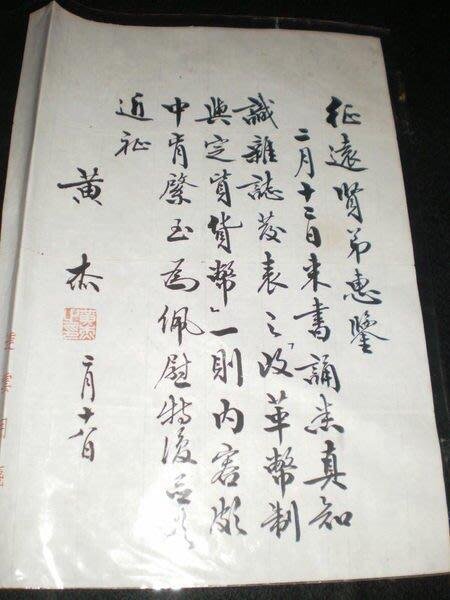 征遠賢弟惠鑒
二月十二日來書誦悉真知
識雜誌發表之「改革幣制
與定貨貨幣」一則內容頗
中肯綮至為佩慰特復並頌
近祉
黃杰
二月十六日